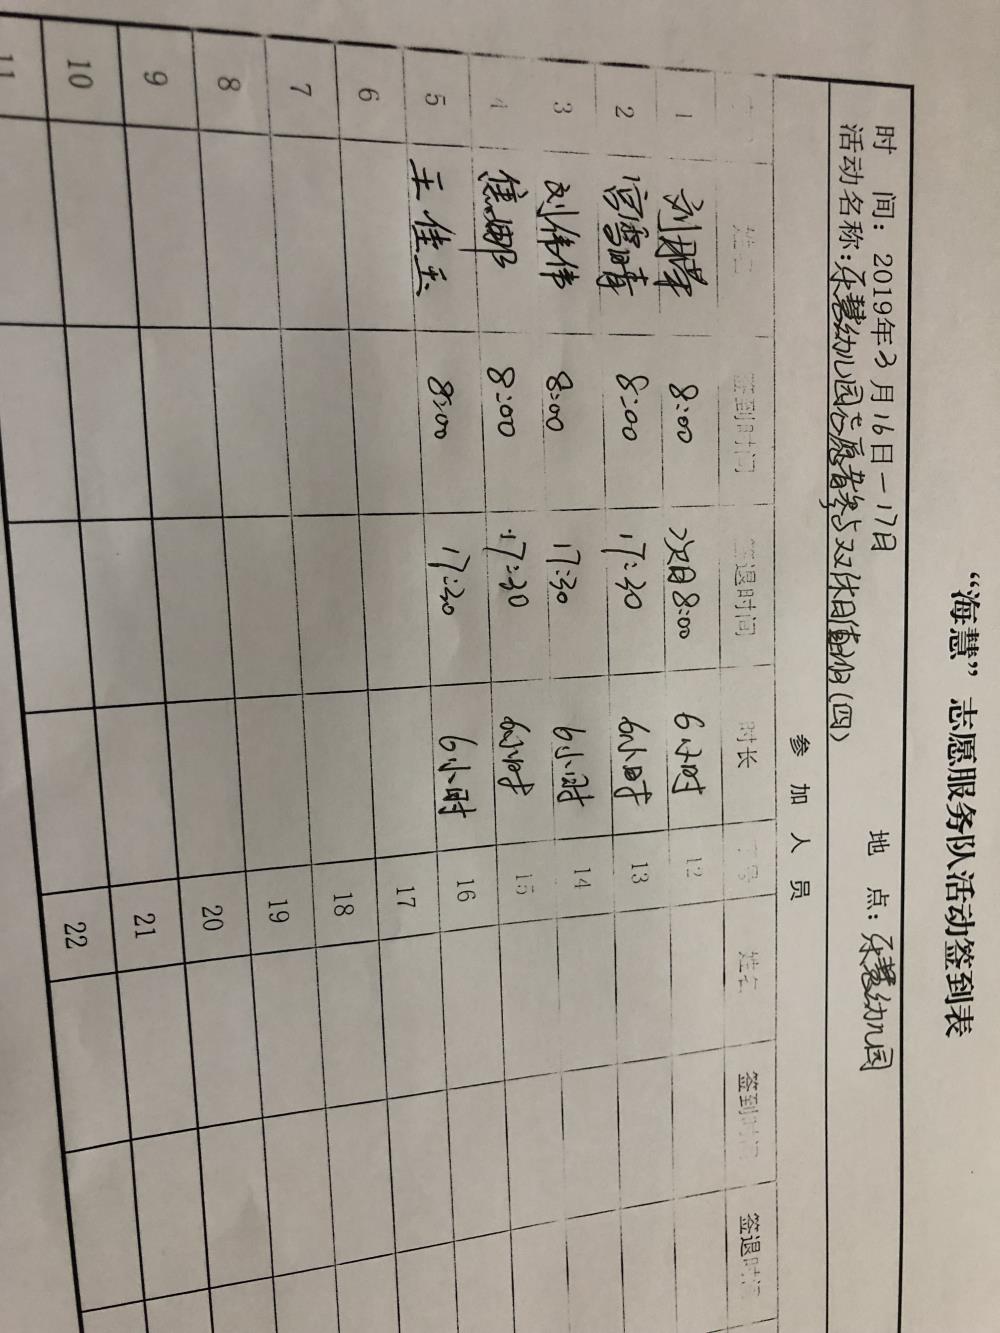 “海慧”志愿服务队活动签到表
时 间：2019年3月16日-17日 地 点：乐慧幼儿园
活动名称：乐慧幼儿园志愿者参与双休日值班(四)
参 加 人 员
姓名 签到时间 签退时间 时长 序号 姓名 签到时间 签退时间
1 8:00 次日8:00 6小时 12
2 宫雪晴 8:00 17:30 6小时 13
3 刘伟伟 8:00 17:30 6小时 14
4 焦娜 8:00 17:30 6小时 15
5 王佳玉 8:00 17:30 6小时 16
6 17
7 18
8 19
9 20
10 21
11 22